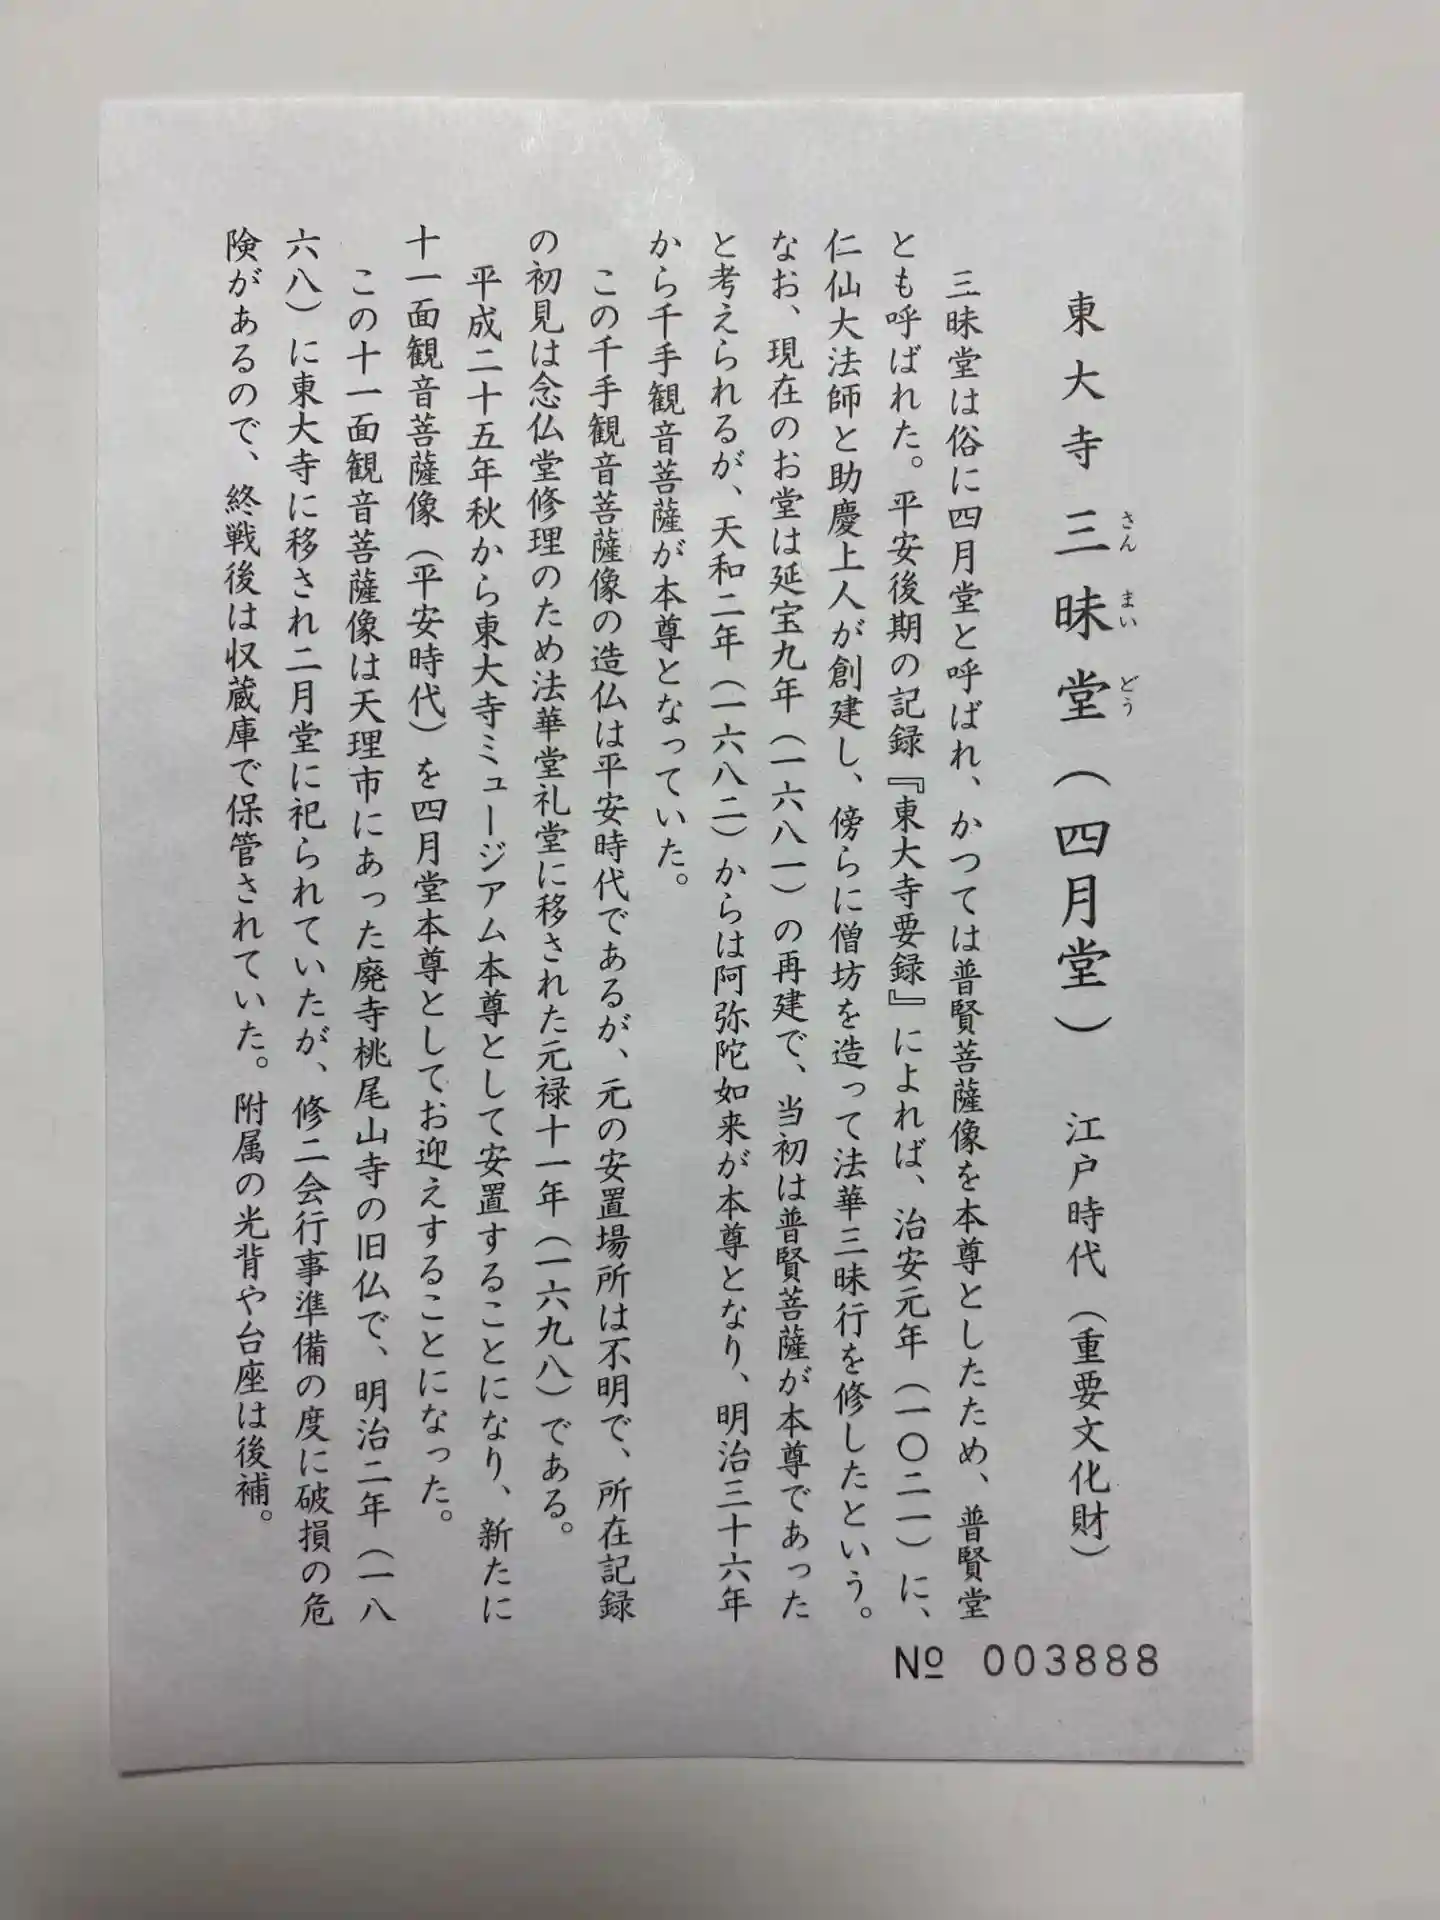 東大寺三昧堂（四月堂）　江戸時代（重要文化財）
さんまいどう
三昧堂は俗に四月堂と呼ばれ、かつては普賢菩薩像を本尊としたため、普賢堂
とも呼ばれた。平安後期の記録『東大寺要録』によれば、治安元年（一〇二一）に、
仁仙大法師と助慶上人が創建し、傍らに僧坊を造って法華三昧行を修したという。
なお、現在のお堂は延宝九年（一六八一）の再建で、当初は普賢菩薩が本尊であった
と考えられるが、天和二年（一六八二）からは阿弥陀如来が本尊となり、明治三十六年
から千手観音菩薩が本尊となっていた。
この千手観音菩薩像の造仏は平安時代であるが、元の安置場所は不明で、所在記録
の初見は念仏堂修理のため法華堂礼堂に移された元禄十一年（一六九八）である。
平成二十五年秋から東大寺ミュージアム本尊として安置することになり、新たに
十一面観音菩薩像（平安時代）を四月堂本尊としてお迎えすることになった。
この十一面観音菩薩像は天理市にあった廃寺桃尾山寺の旧仏で、明治二年（一八
六八）に東大寺に移され二月堂に祀られていたが、修二会行事準備の度に破損の危
険があるので、終戦後は収蔵庫で保管されていた。附属の光背や台座は後補。
№ 003888